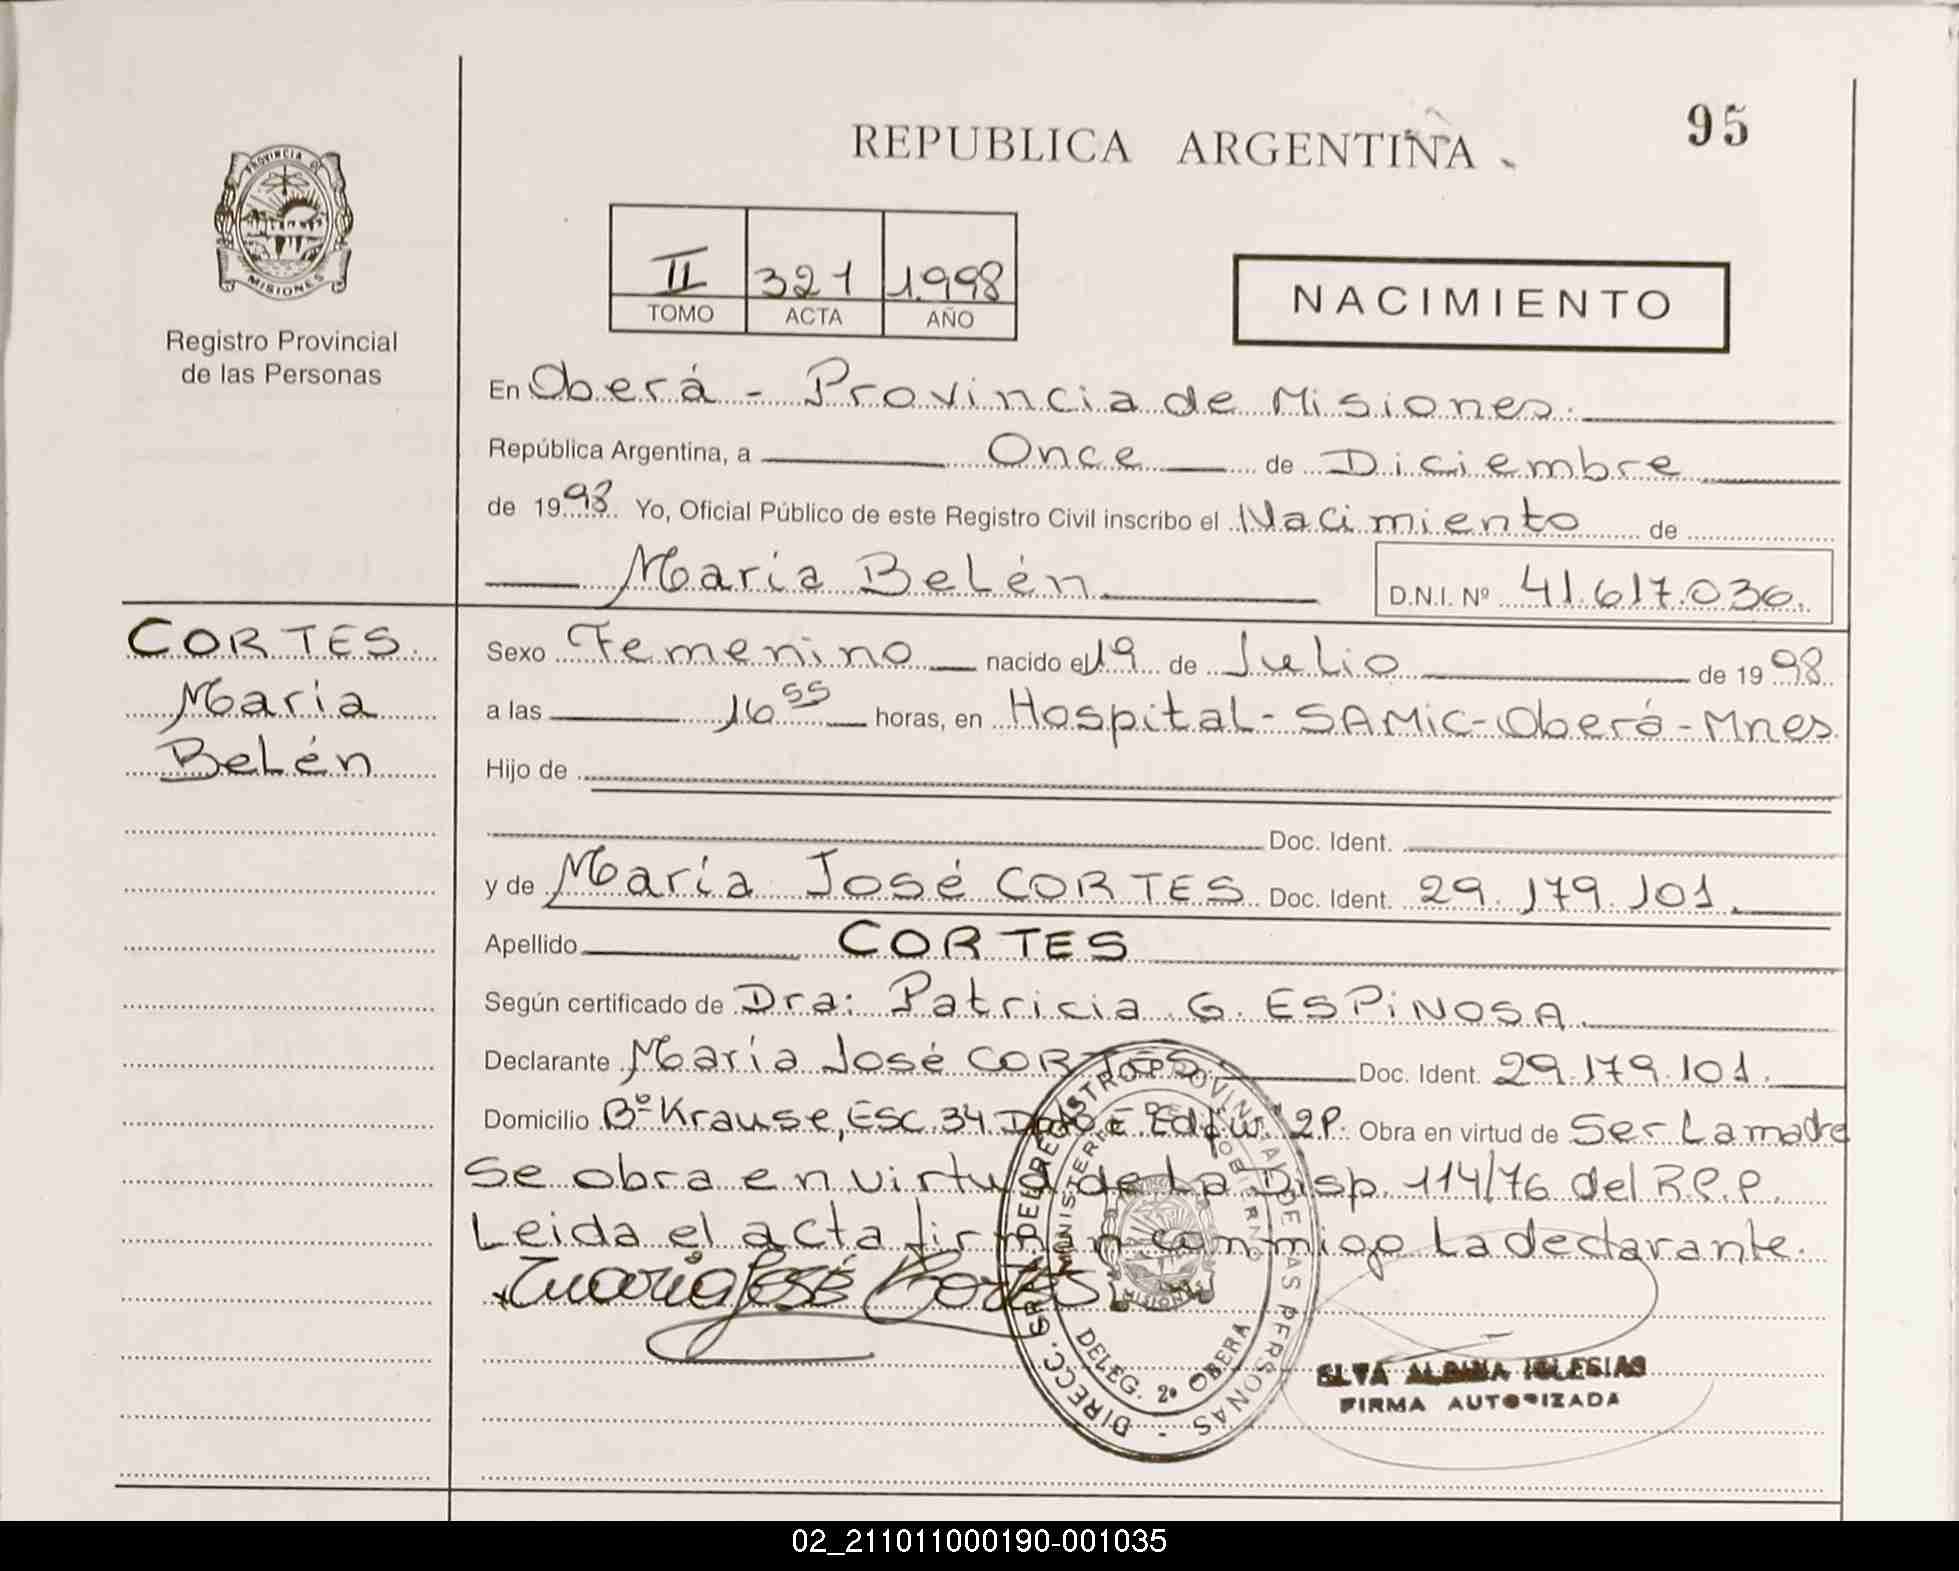 95
REPUBLICA ARGENTINA
PROVINCIA DE
MISIONES
Registro Provincial
de las Personas
II 321 1998
TOMO ACTA AÑO
NACIMIENTO
En Oberá - Provincia de Misiones.
República Argentina, a Once de Diciembre
de 1998 Yo, Oficial Público de este Registro Civil inscribo el Nacimiento de
María Belén D.N.I. Nº 41.617.036.
CORTES
María
Belén
Sexo Femenino nacido el 19 de Julio de 1998
a las 16 55 horas, en Hospital - SAMIC - Oberá - Mnes.
Hijo de
Doc. Ident.
y de María José CORTES Doc. Ident. 29.179.101.
Apellido CORTES
Según certificado de Dra: Patricia G. ESPINOSA.
Declarante María José CORTES Doc. Ident. 29.179.101.
Domicilio Bº Krause, Esc. 34 2P. Obra en virtud de Ser La madre
Se obra en virtud de La Disp. 114/76 del R.P.P.
Leida el acta firman conmigo La declarante.
María José Cortes
DIRECC. GRAL DEL REGISTRO PROVINCIAL DE LAS PERSONAS -
MINISTERIO DE GOBIERNO
MISIONES
DELEG. 2º OBERA
ELVA ALBINA IGLESIAS
FIRMA AUTORIZADA
02_211011000190-001035